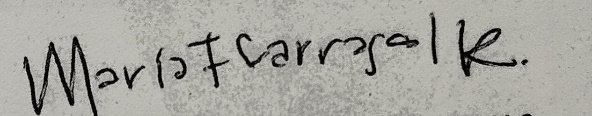 Maria F Carrasal K.